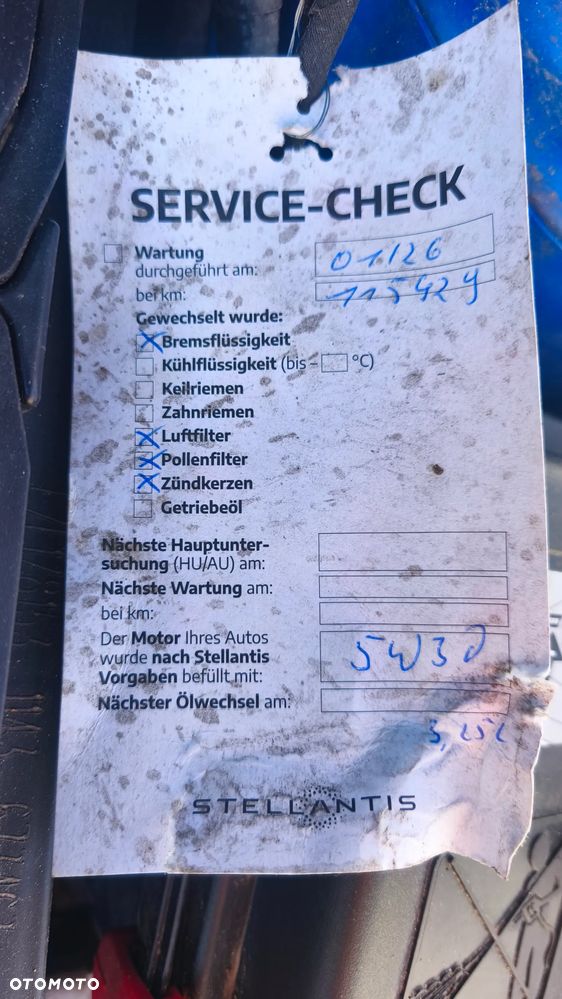 SERVICE-CHECK
Wartung
durchgeführt am: 01/26
bei km: 115429
Gewechselt wurde:
Bremsflüssigkeit
Kühlflüssigkeit (bis – °C)
Keilriemen
Zahnriemen
Luftfilter
Pollenfilter
Zündkerzen
Getriebeöl
Nächste Hauptunter-
suchung (HU/AU) am:
Nächste Wartung am:
bei km:
Der Motor Ihres Autos
wurde nach Stellantis
Vorgaben befüllt mit: 5W30
Nächster Ölwechsel am:
STELLANTIS
OTOMOTO